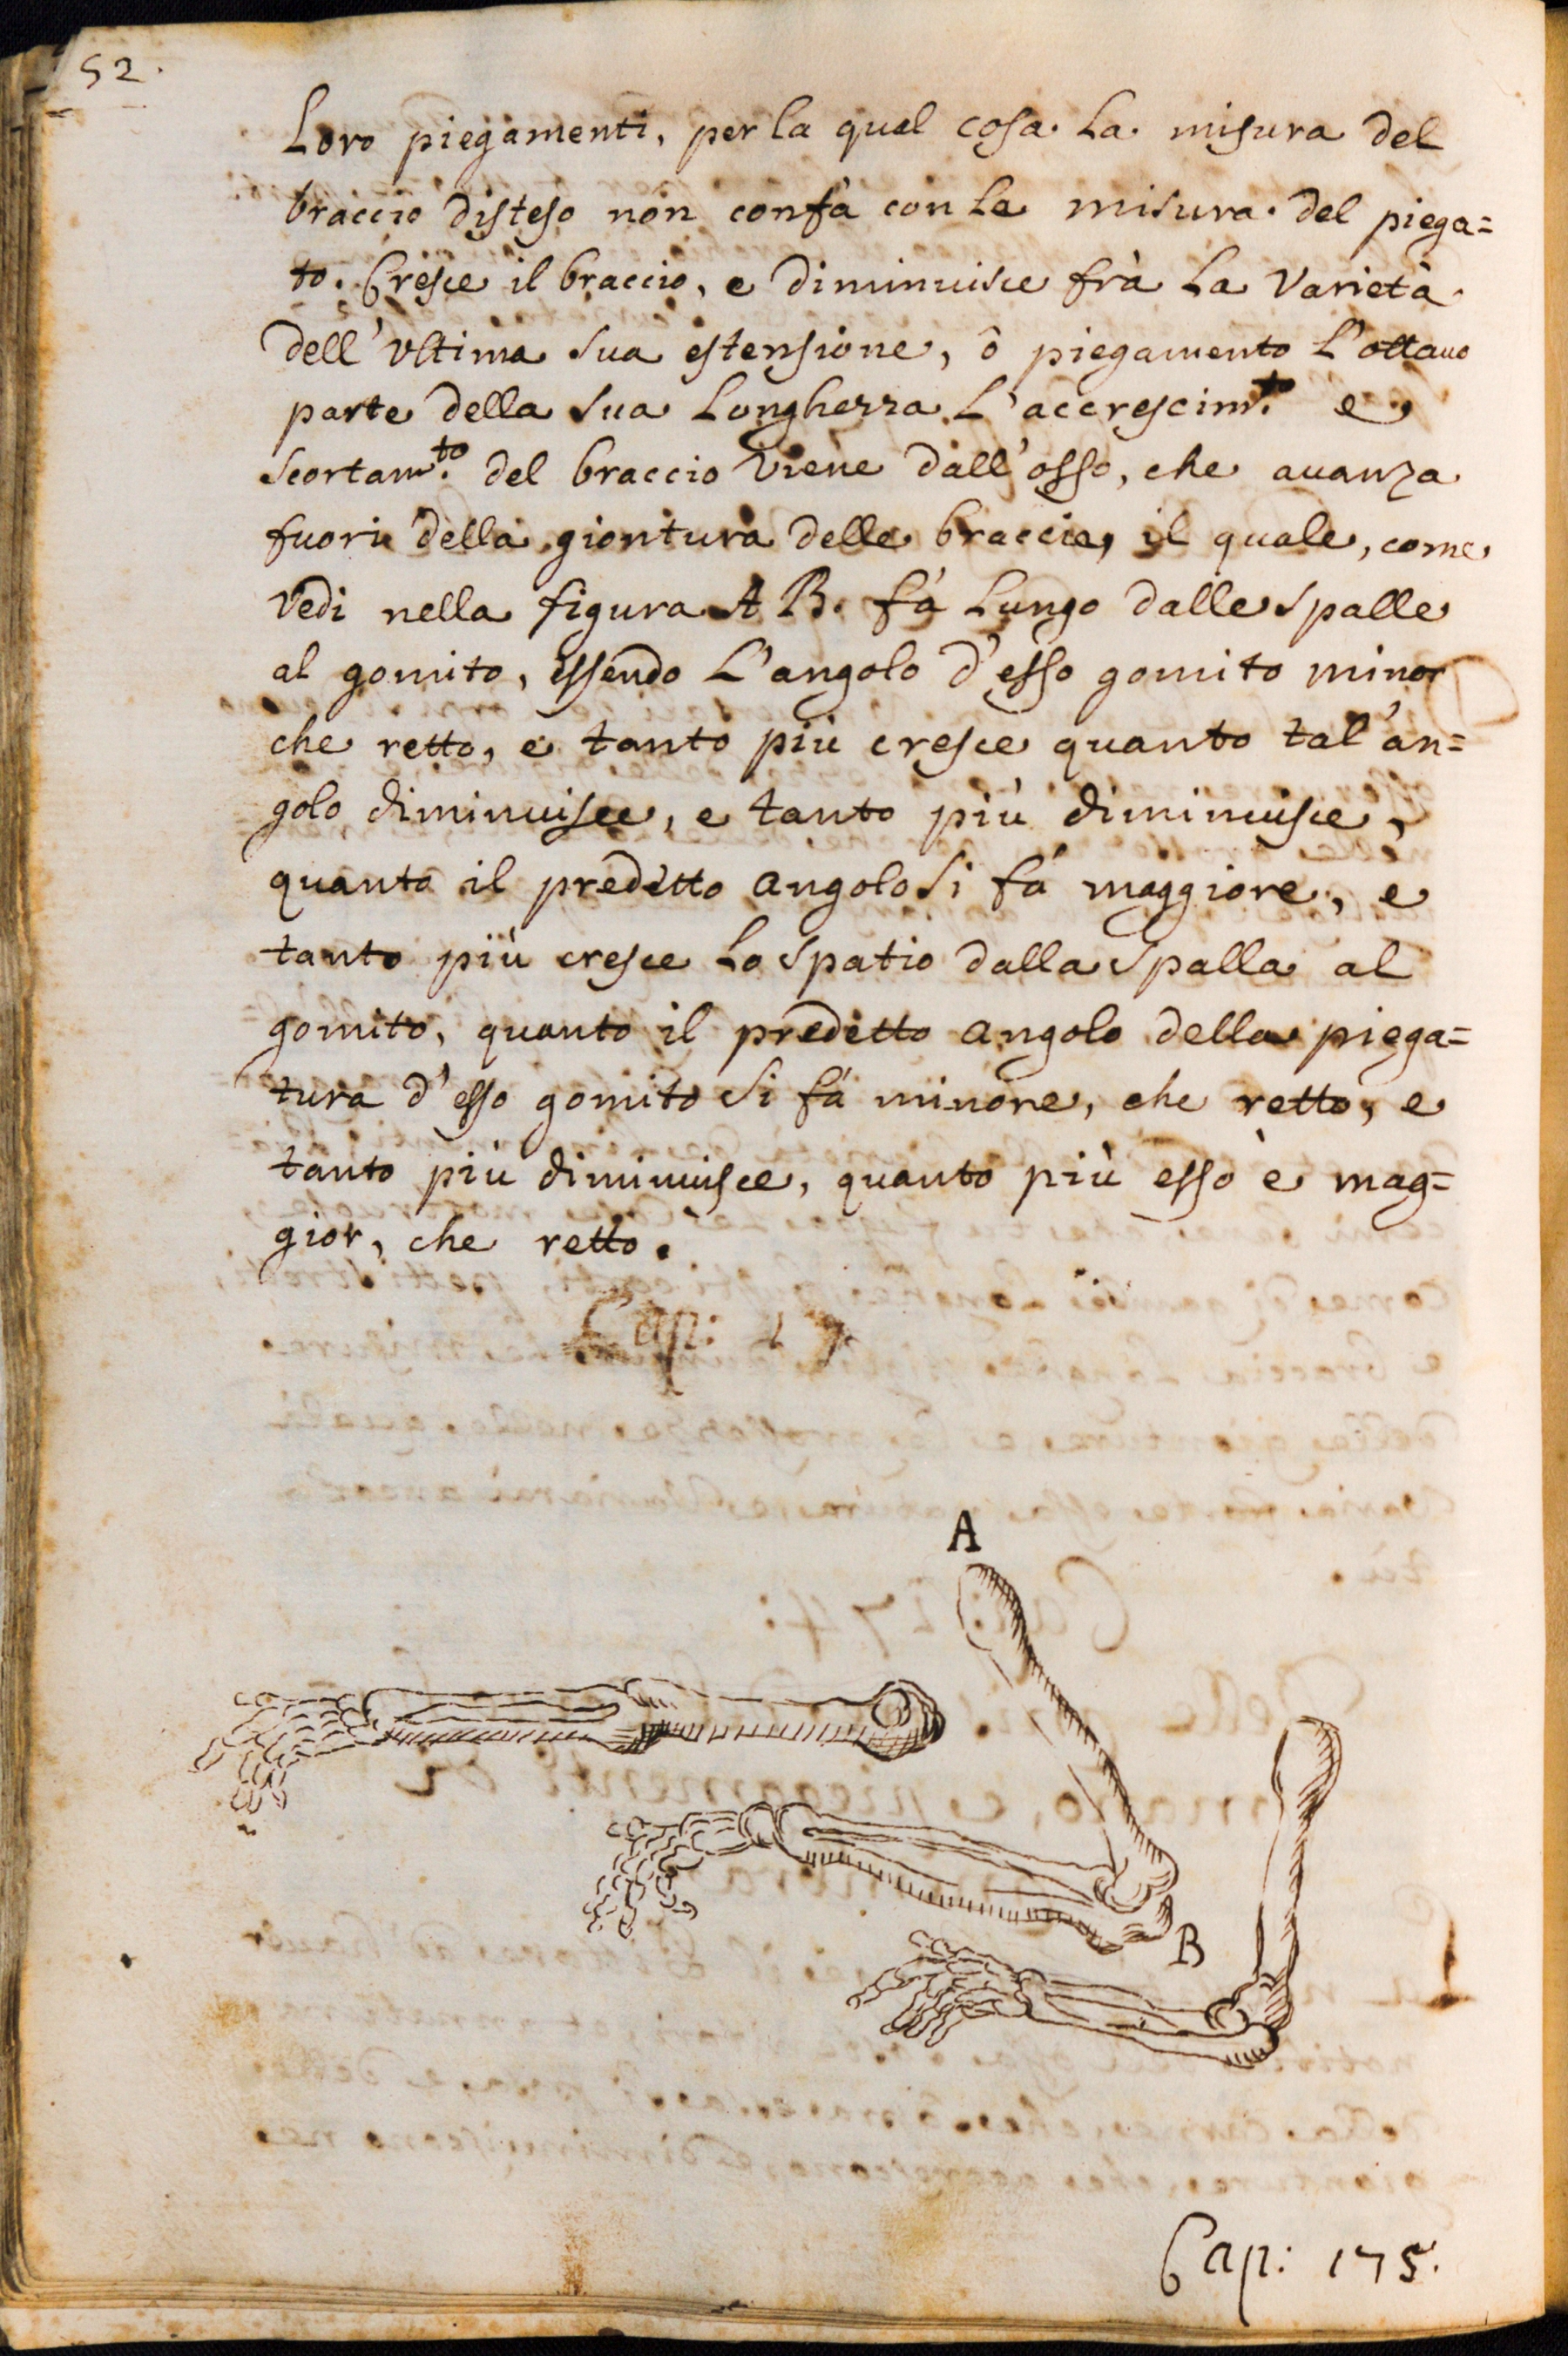 52.
Loro piegamenti, per la qual cosa. La. misura del
braccio disteso non confà con la misura. del piega=
to. Cresce il braccio, e diminuisce frà La Varietà.
dell'Vltima sua estensione, ò piegamento L'ottaua
parte della sua Longhezza L'accrescim.to e
scortam.to del braccio viene dall'osso, che auanza
fuori della giontura delle braccia, il quale, come
vedi nella figura A B. fà Lungo dalle spalle
al gomito, essendo L'angolo d'esso gomito minor
che retto, e tanto più cresce quanto tal'an=
golo diminuisce, e tanto più diminuisce,
quanto il predetto angolo si fà maggiore, e
tanto più cresce Lo spatio dalla spalla al
gomito, quanto il predetto angolo della piega=
tura d'esso gomito si fà minore, che retto, e
tanto più diminuisce, quanto più esso è mag=
gior, che retto.
Cap: 17
A
B
Cap: 175.